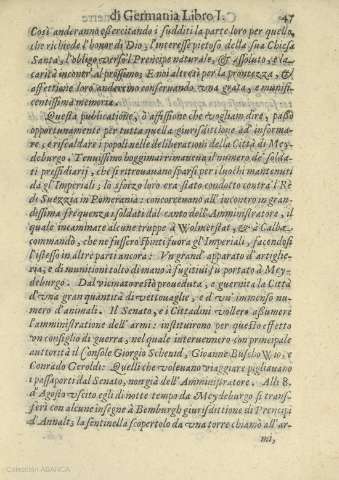 di Germania Libro I. 47
Così anderanno essercitando i sudditi la parte loro per quello,
che richiede l'honor di Dio, l'interesse pietoso della sua Chiesa
Santa, l'obligo verso l Prencipe naturale, & assoluto, e la ca-
rità incontr'al prossimo; E noi altresì per la prontezza, &
affettione loro anderemo conservando vna grata, e munifi-
centissima memoria.
Questa publicatione, ò affissione che vogliam dire, passò
opportunamente per tutta quella giurisdittione ad informa-
re, e riscaldare i popoli nelle deliberationi della Città di Mey-
deburgo. Tenuissimo hoggimai rimaneua il numero de' solda-
ti pressidiarij, che si ritrouauano sparsi per i luochi mantenuti
da gl'Imperiali; lo sforzo loro era stato condotto contra'l Rè
di Suezzia in Pomerania: concorreuano all'incontro in gran-
dissima frequenza i soldati dal canto dell'Amministratore, il
quale incaminate alcune truppe à Wolmerstat, & à Calbe
commandò, che ne fussero spinti fuora gl'Imperiali, facendosi
l'istesso in altre parti ancora: Vn grand'apparato d'artiglie-
ria, e di munitioni tolto di mano à fugitiui fu portato à Mey-
deburgo. Dal vicinato restò proueduta, e guernita la Città
d'vna gran quantità di vettouaglie, e d'vn immenso nu-
mero d'animali. Il Senato, e i Cittadini vollero assumere
l'amministratione dell'armi: instituirono per questo effetto
vn consiglio di guerra, nel quale interuennero con principale
autorità il Console Giorgio Scheutd, Gioanne Buscho Wio, e
Conrado Geroldi: Quelli che voleuano viaggiare pigliauano
i passaporti dal Senato, non già dell'Amministratore. Alli 8.
d'Agosto vscito egli di notte tempo da Meydeburgo si trans-
ferì con alcune insegne à Bemburgh giurisdittione di Prencipi
d'Annalt; la sentinella scopertolo da vna torre chiamò all'ar-
mi,
Colección ABANCA